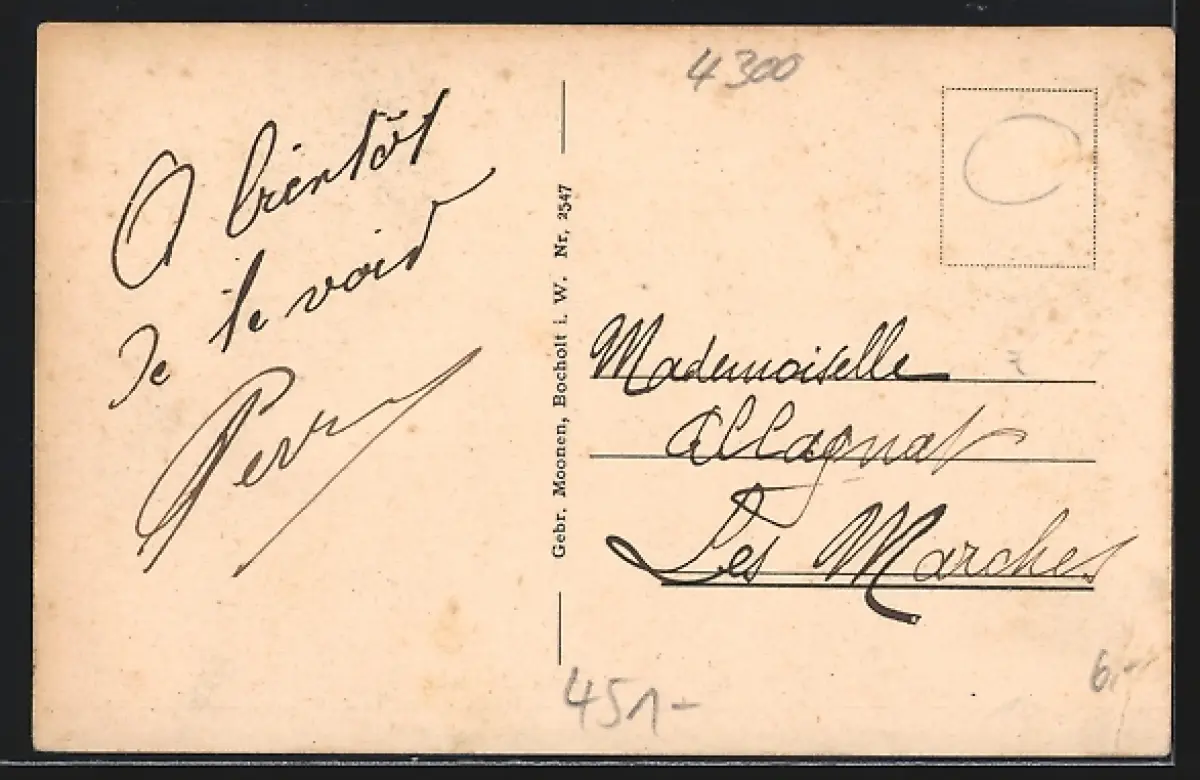 A bientôt
Je te vois
Perr
Gebr. Moonen, Bocholt i. W. Nr. 2547
4300
Mademoiselle
Allagnat
Les Marches
451-
6,-